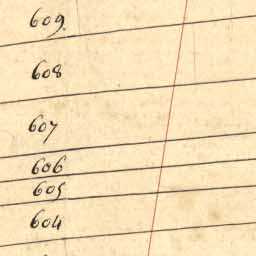 609.
608
607
606
605
604